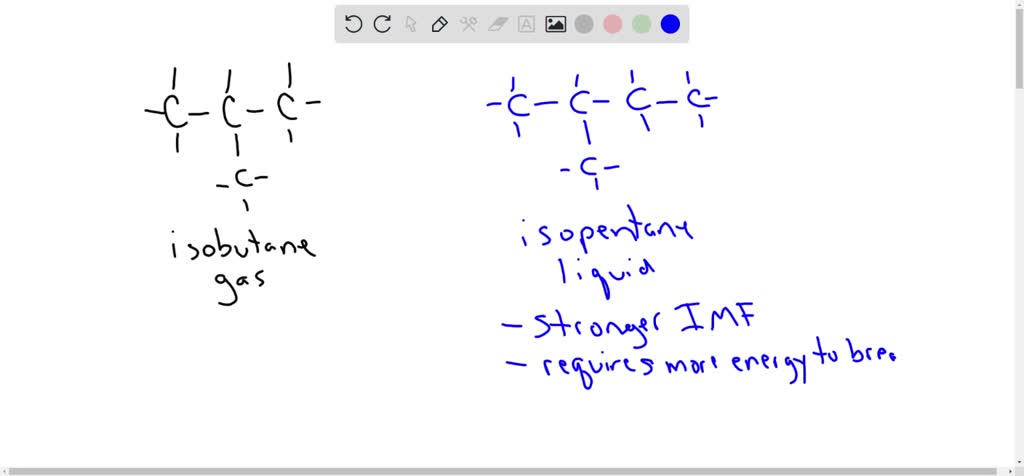 - C - C - C -
- C - C - C - C -
- C -
- C -
isobutane
gas
isopentane
liquid
- stronger IMF
- requires more energy to brea